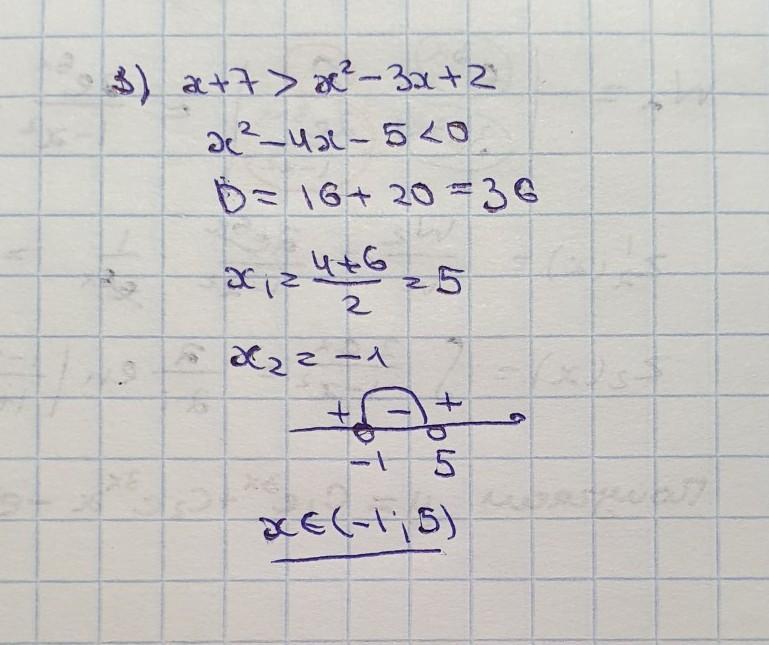 3) x+7 > x² - 3x + 2
x² - 4x - 5 < 0
D = 16 + 20 = 36
x₁ = (4+6)/2 = 5
x₂ = -1
+ - +
-1 5
x ∈ (-1; 5)